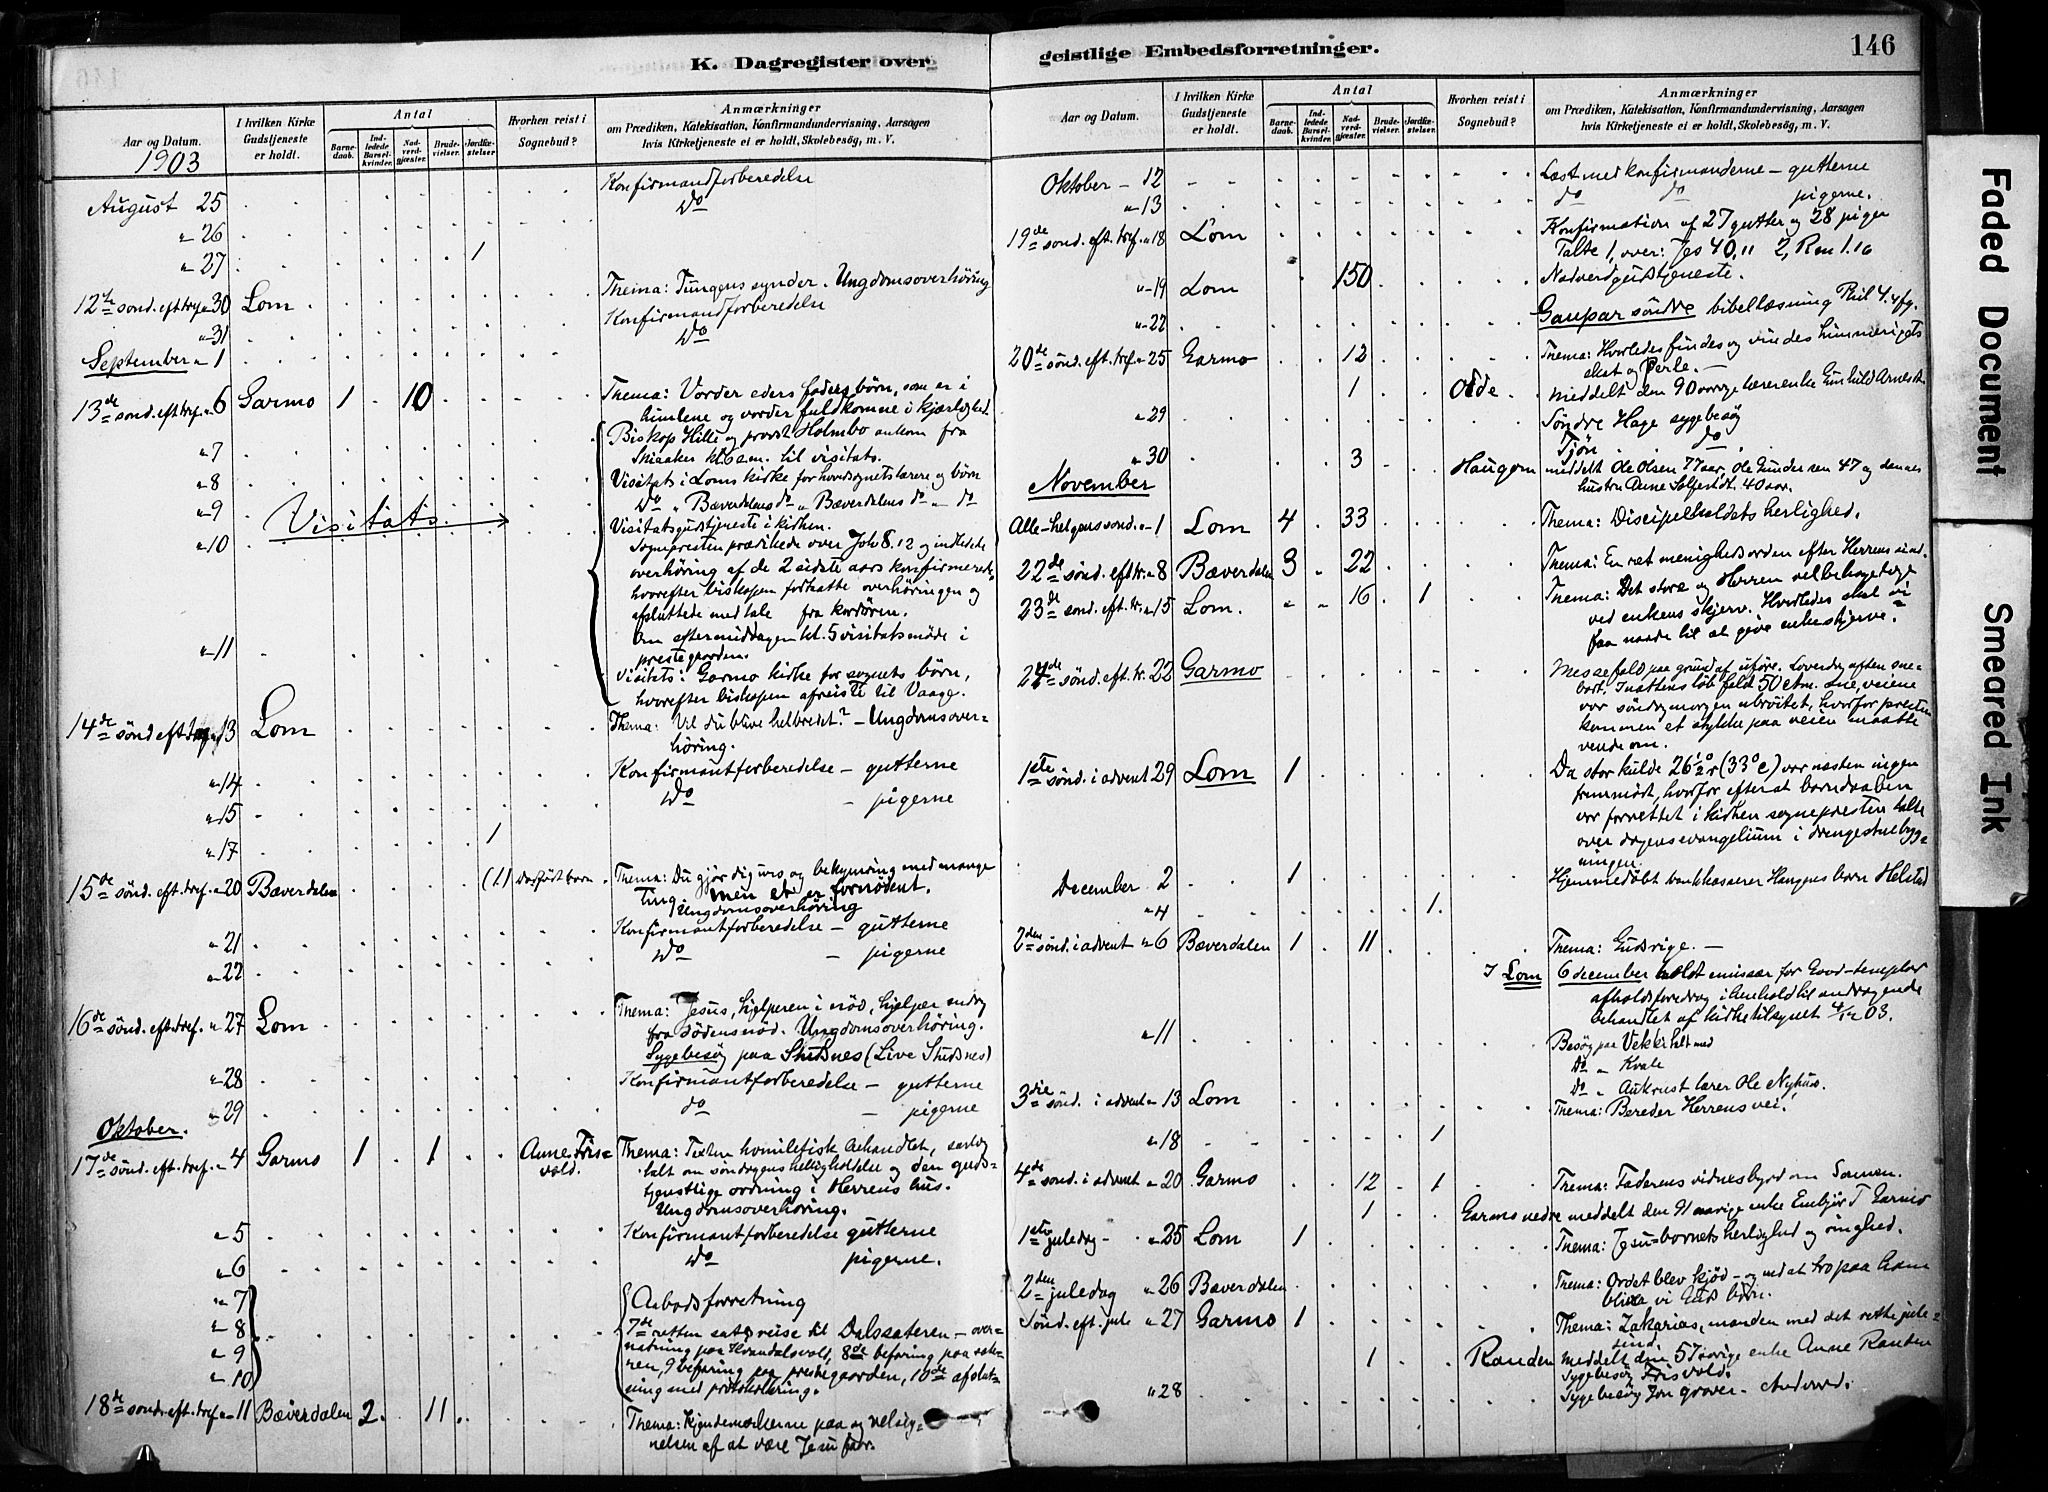 K. Dagregister over
Aar og Datum.
I hvilken Kirke Gudstjeneste er holdt.
Antal
Barnedaab.
Indledede Barselkvinder.
Nadverdgjæster.
Brudevielser.
Jordfæstelser
Hvorhen reist i Sognebud?
Anmærkninger
om Prædiken, Katekisation, Konfirmandundervisning, Aarsagen
hvis Kirketjeneste ei er holdt, Skolebesøg, m. V.
1903
August 25 Konfirmandforberedelse
" 26 Do
" 27 1
12te sond. eft. tref. " 30 Lom Thema: Tungens synder. Ungdomsoverhöring
" 31 Konfirmandforberedelse
September " 1 Do
13de sond. eft. tref. " 6 Garmo 1 10 Thema: Vorder eders faders börn, som er i
himlene og vorder fuldkomne i kjærlighed.
" 7 Biskop Hille og provst Holmbo ankom fra
Skiaker kl. 6 em. til visitats.
" 8 Visitats i Loms kirke for hovedsognets lærere og börn
" 9 Visitats. Do " Bæverdalens do " Bæverdalens do " do
" 10 Visitatsgudstjeneste i kirken.
Sognepresten prædikede over Joh 8.12 og indledede
overhöring af de 2 sidste aars konfirmerede,
hvorefter biskopen fortsatte overhöringen og
afsluttede med tale fra kordören.
Om eftermiddagen kl. 5 visitatsmöde i
prestegaarden.
" 11 Visitats i Garmo kirke for sognets börn,
hvorefter biskopen afreiste til Vaage.
14de sönd eft. tref. " 13 Lom Thema: Vil du blive helbredet? – Ungdomsover=
höring.
" 14 Konfirmantforberedelse – gutterne
" 15 Do – pigerne
" 17 1
15de sönd. eft. tref. " 20 Bæverdalen (1) Dødfødt barn Thema: Du gjør dig uro og bekymring med mange
ting, men et er fornödent.
Ungdomsoverhöring
" 21 Konfirmantforberedelse – gutterne
" 22 Do – pigerne
16de sönd. eft. tref. " 27 Lom Thema: Jesus, hjelperen i nöd, hjelper endog
fra dödens nöd. Ungdomsoverhöring.
Sygebesög paa Studsnes (Live Studsnes)
" 28 Konfirmantforberedelse – gutterne
" 29 do – pigerne
Oktober.
17de sönd. eft. tref. " 4 Garmo 1 1 Anne Fris=
vold. Thema: Texten homiletisk behandlet, særlig
talt om söndagens helligholdelse og den guds=
tjenstlige ordning i Herrens hus.
Ungdomsoverhöring.
" 5 Konfirmantforberedelse gutterne
" 6 Do pigerne.
" 7 Aabodsforretning
" 8 7de retten sat, reise til Dalssæteren – over=
" 9 natning paa, 8de befaring paa sæte=
" 10 ren, 9 befaring paa prestegaarden, 10de afslut=
ning med protokollering.
18de sond. eft. tref. " 11 Bæverdalen 2 11 Thema: Kjendemærkerne paa og velsig=
nelsen af at være Jesu faar.
geistlige Embedsforretninger.
146
Aar og Datum.
I hvilken Kirke Gudstjeneste er holdt.
Antal
Barnedaab.
Indledede Barselkvinder.
Nadverdgjæster.
Brudevielser.
Jordfæstelser
Hvorhen reist i Sognebud?
Anmærkninger
om Prædiken, Katekisation, Konfirmandundervisning, Aarsagen
hvis Kirketjeneste ei er holdt, Skolebesøg, m. V.
Oktober – 12 Læst med konfirmanderne – gutterne
" 13 do do pigerne.
19de sönd. eft. tref. " 18 Lom Konfirmation af 27 gutter og 28 piger
Talte 1, over: Jes 40,11 2, Rom 1.16
" 19 Lom 150 Nadverdgudstjeneste.
" 22 Gaupar söndre bibellæsning Phil 4.4 fg.
20de sönd. eft. tref. " 25 Garmo 12 Thema: Hvorledes findes og vindes himmerigets
skat og perle. –
1 Odde meddelt den 90 aarige lærerenke Gunhild Arnesdt.
" 29 Söndre Hage sygebesög
Tjön do
" 30 3 Haugom meddelt Ole Olsen 77 aar, Ole Gundersen 47 og dennes
hustru Anne 40 aar.
November
Alle-helgens sond. " 1 Lom 4 33 Thema: Discipelholdets herlighed.
22de sönd. eft. tr. " 8 Bæverdalen 3 22 Thema: En ret menighedsorden efter Herrens sind.
23de sond. eft. tr. " 15 Lom. " " 16 1 Thema: Det store og Herren velbehagelige
ved enkens skjerv. Hvorledes skal vi
faa naade til at give enkeskjerve.
24de sönd. eft. tr. 22 Garmo Messefald paa grund af uföre. Löverdag aften sne=
bart. I nattens löb faldt 50 ctm. sne, veiene
var söndag morgen ubröitet, hvorfor presten
kommen et stykke paa veien maatte
vende om.
1ste sönd. i advent 29 Lom 1 Da stor kulde 26½° r (33° c) var næsten ingen
fremmödt, hvorfor efter at barnedaaben
var forrettet i kirken sognepresten talte
over dagens evangelium i drengestuebyg=
ningen.
December 2 1 Hjemmedöbt bankkasserer Haugens barn Helstad
" 4 1.
2den sönd. i advent " 6 Bæverdalen 1 11 Thema: Guds rige. –
I Lom 6 december holdt emissær for Good-templar
afholdsforedrag i henhold til andragende
behandlet af kirketilsynet 4/12 03.
" 11 Besög paa
Do " Kvale
Do " Aukrust lærer Ole Nyhus.
3die sönd. i advent " 13 Lom Thema: Bereder Herrens vei!
" 18 1
4de sönd. i advent " 20 Garmo 12 1 Thema: Faderens vidnesbyrd om Sönnen.
1 Garmo nedre meddelt den 91 aarige enke Embjør T Garmo
1ste juledag – " 25 Lom 1 Thema: Jesu-barnets herlighed og ringhed.
2den juledag " 26 Bæverdalen Thema: Ordet blev kjød – og ved at tro paa ham
bliver vi Guds börn.
Sönd. eft. jule " 27 Garmo 1 Thema: Zakarias, manden med det rette jule=
sind.
1 Randen Meddelt den 57 aarige enke Anne Randen
Sygebesög Frisvold.
" 28 Sygebesög Jon graver – Andvord.
Faded Document
Smeared Ink